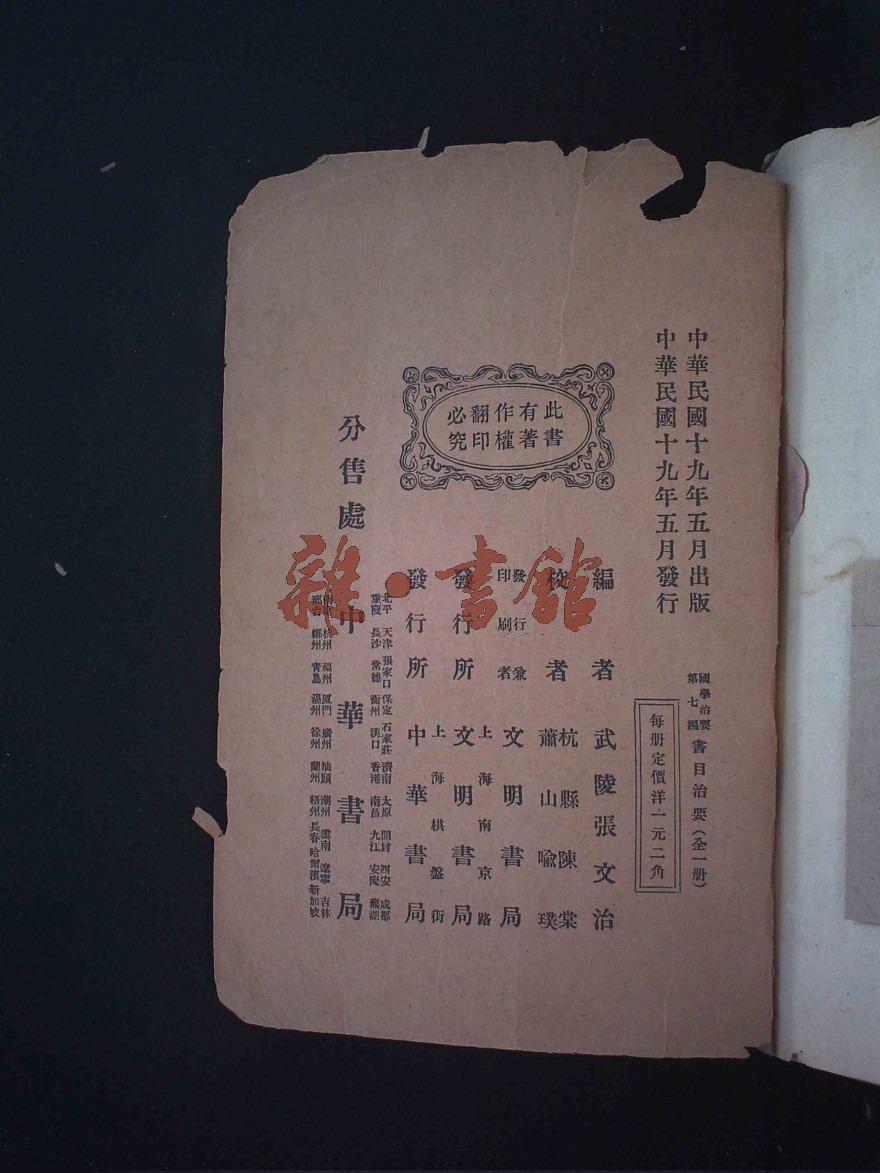 中華民國十九年五月出版
中華民國十九年五月發行
國學治要
第七編
書目治要(全一册)
每册定價洋一元二角
編者 武陵張文治
校者 杭縣陳棠
蕭山喻璞
發行兼
印刷者 文明書局
上海南京路
發行所 文明書局
上海棋盤街
發行所 中華書局
此書
有著
作權
翻印
必究
北平 天津 張家口 保定 石家莊 濟南 太原 開封 西安 成都
重慶 長沙 常德 衡州 漢口 香港 南昌 九江 安慶 蕪湖
分售處 中華書局
杭州 福州 厦門 廣州 汕頭 潮州 雲南 遼寧 吉林
鄭州 青島 溫州 徐州 蘭州 梧州 長春 哈爾濱 新加坡
雜·書館